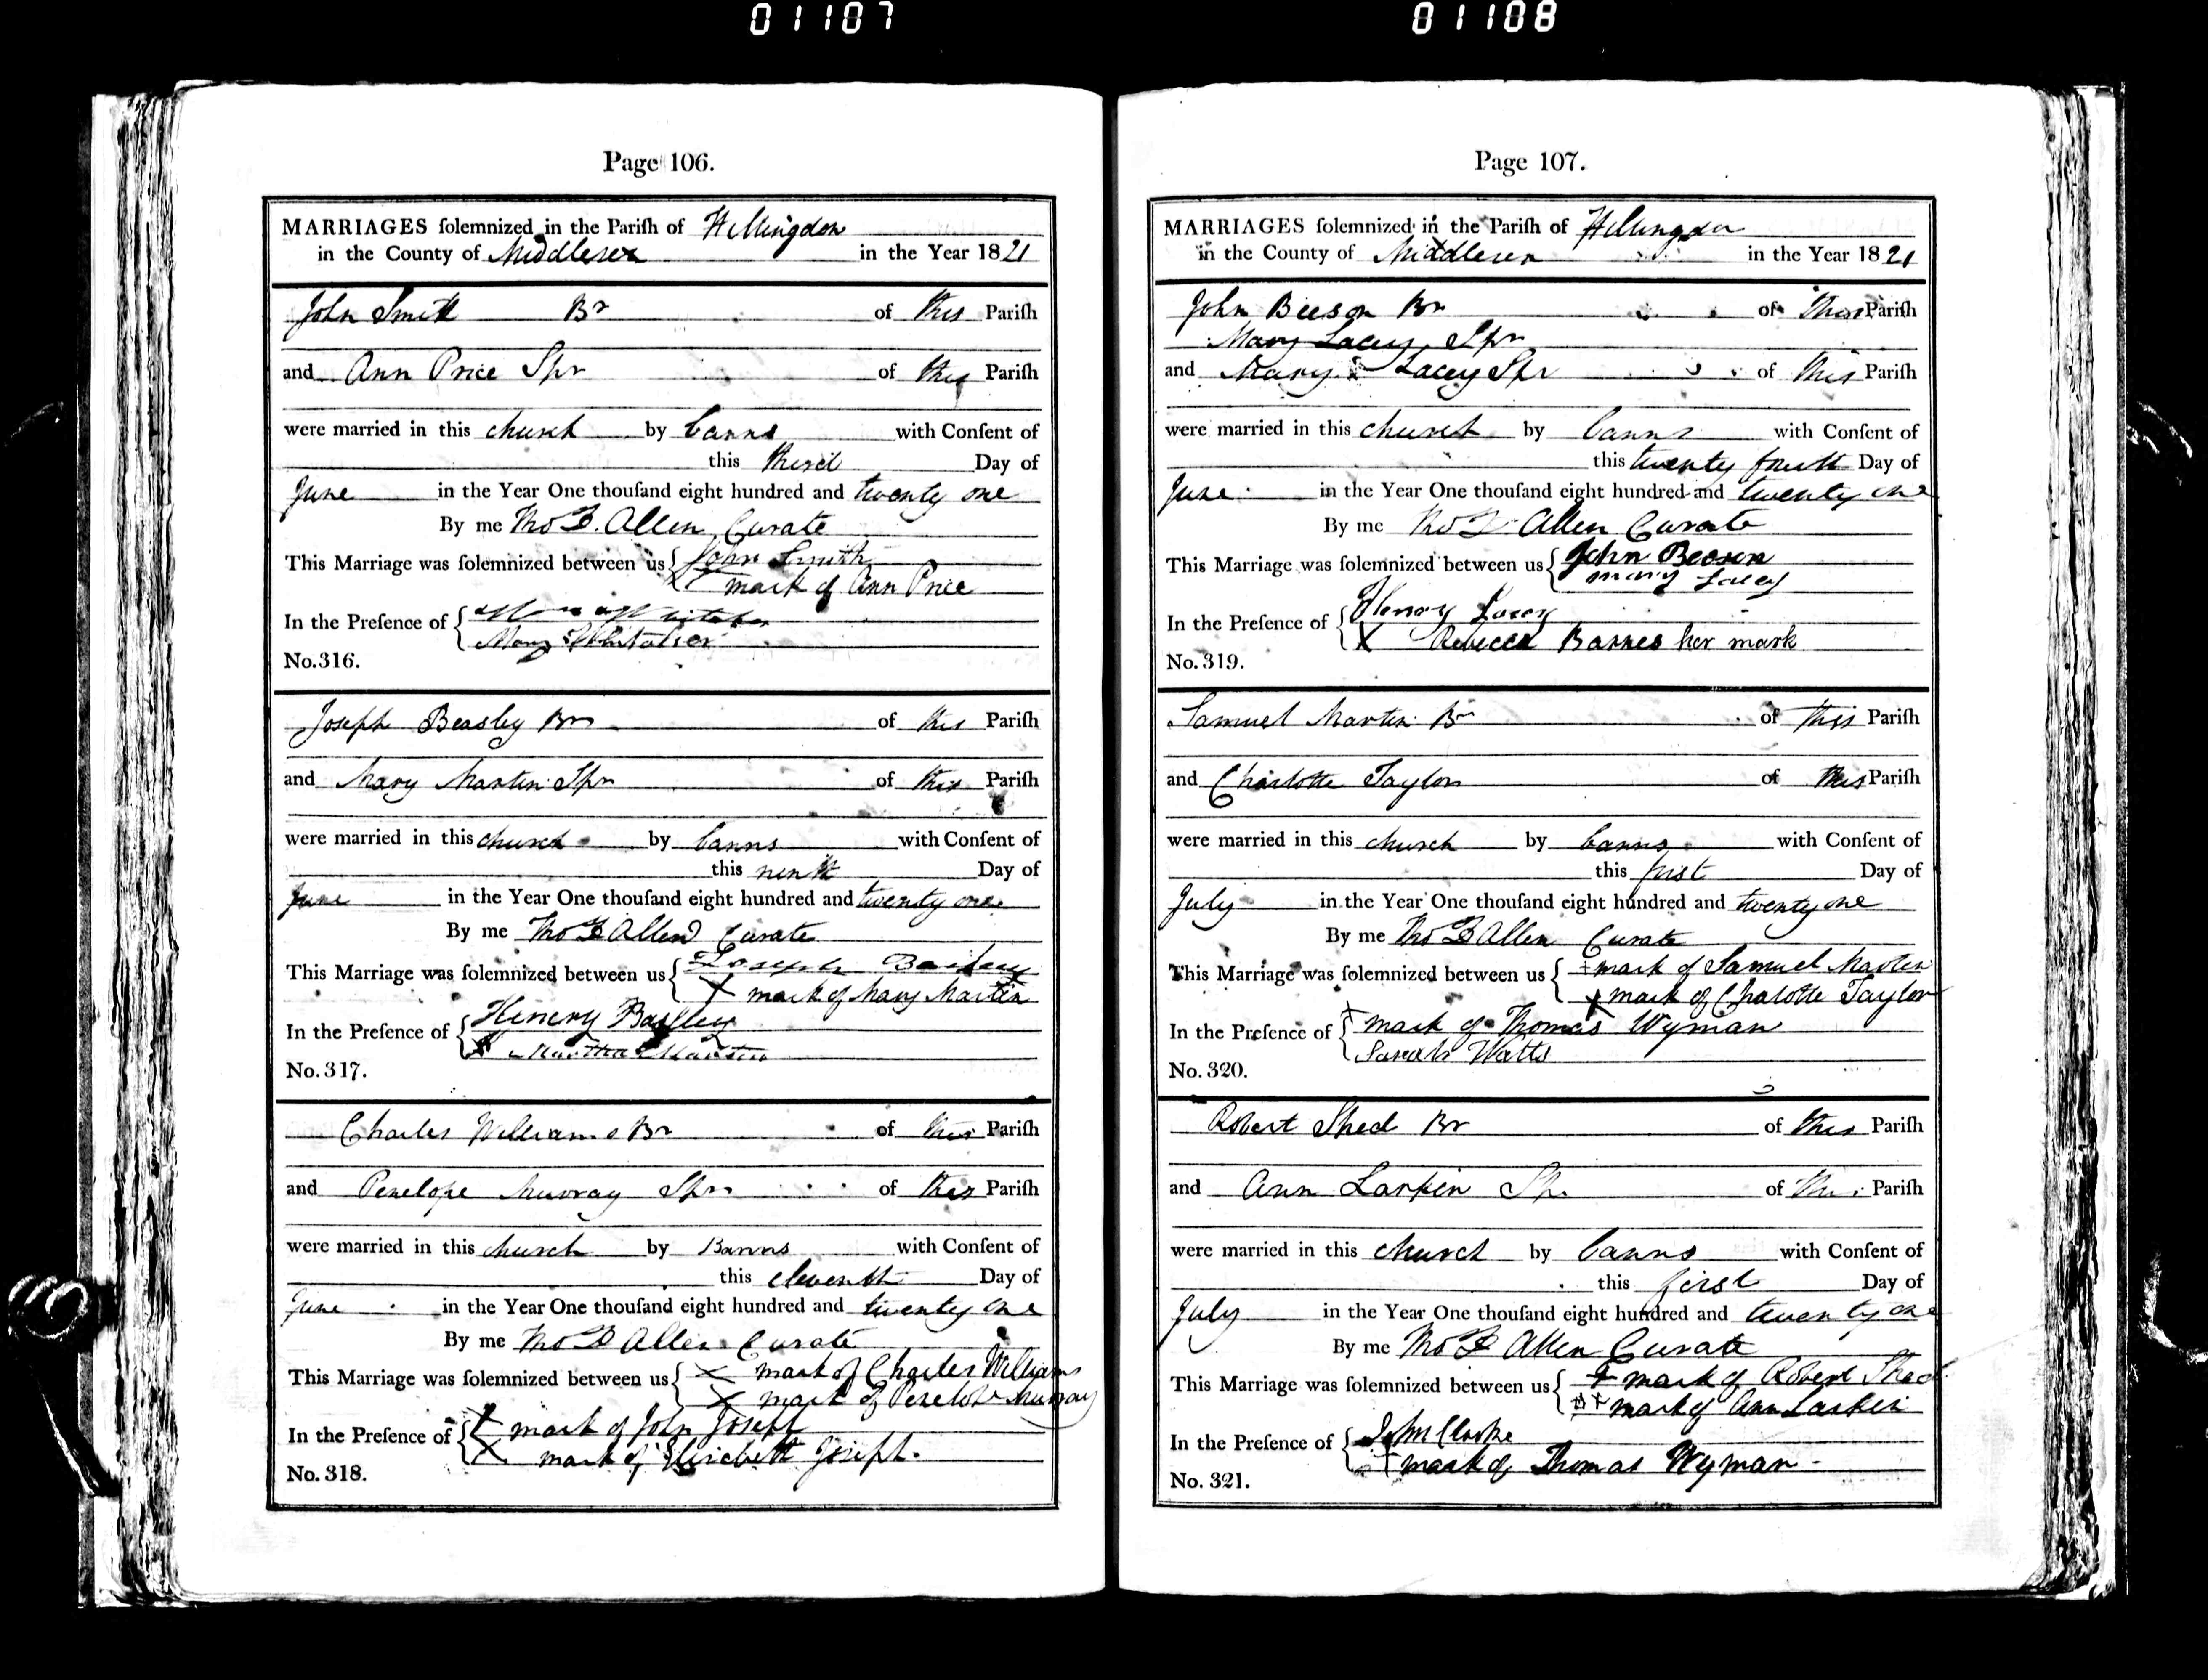 01107
01108
Page 106.
MARRIAGES ſolemnized in the Pariſh of Hillingdon
in the County of Middlesex in the Year 1821
John Smith Br of this Pariſh
and Ann Price Spr of this Pariſh
were married in this church by banns with Conſent of
this third Day of
June in the Year One thouſand eight hundred and twenty one
By me Thos Allen Curate
This Marriage was ſolemnized between us John Smith
X mark of Ann Price
In the Preſence of
Mary Whitaker
No. 316.
Joseph Beasley Br of this Pariſh
and Mary Martin Spr of this Pariſh
were married in this church by banns with Conſent of
this ninth Day of
June in the Year One thouſand eight hundred and twenty one
By me Thos Allen Curate
This Marriage was ſolemnized between us Joseph
X mark of Mary Martin
In the Preſence of Hinery Baslley
X Martha Martin
No. 317.
Charles Williams Br of this Pariſh
and Penelope Murray Spr of this Pariſh
were married in this church by Banns with Conſent of
this eleventh Day of
June in the Year One thouſand eight hundred and twenty one
By me Thos Allen Curate
This Marriage was ſolemnized between us X mark of Charles Williams
X mark of Penelope Murray
In the Preſence of X mark of John Joseph
X mark of Elizabeth Joseph.
No. 318.
Page 107.
MARRIAGES ſolemnized in the Pariſh of Hillingdon
in the County of Middlesex in the Year 1821
John Beeson Br of this Pariſh
Mary Lacey Spr
and Mary Lacey Spr of this Pariſh
were married in this church by banns with Conſent of
this twenty fourth Day of
June in the Year One thouſand eight hundred and twenty one
By me Thos Allen Curate
This Marriage was ſolemnized between us John Beeson
mary Lacey
In the Preſence of Henry Lacey
X Rebecca Barnes her mark
No. 319.
Samuel Martin Br of this Pariſh
and Charlotte Taylor of this Pariſh
were married in this church by banns with Conſent of
this first Day of
July in the Year One thouſand eight hundred and twenty one
By me Thos Allen Curate
This Marriage was ſolemnized between us + mark of Samuel Martin
X mark of Chalotte Taylor
In the Preſence of + mark of Thomas Wyman
Sarah Watts
No. 320.
Robert Shed Br of this Pariſh
and Ann Larkin Spr of this Pariſh
were married in this church by banns with Conſent of
this first Day of
July in the Year One thouſand eight hundred and twenty one
By me Thos Allen Curate
This Marriage was ſolemnized between us + mark of Robert Shed
+ mark of Ann Larkin
In the Preſence of John Clarke
+ mark of Thomas Wyman
No. 321.